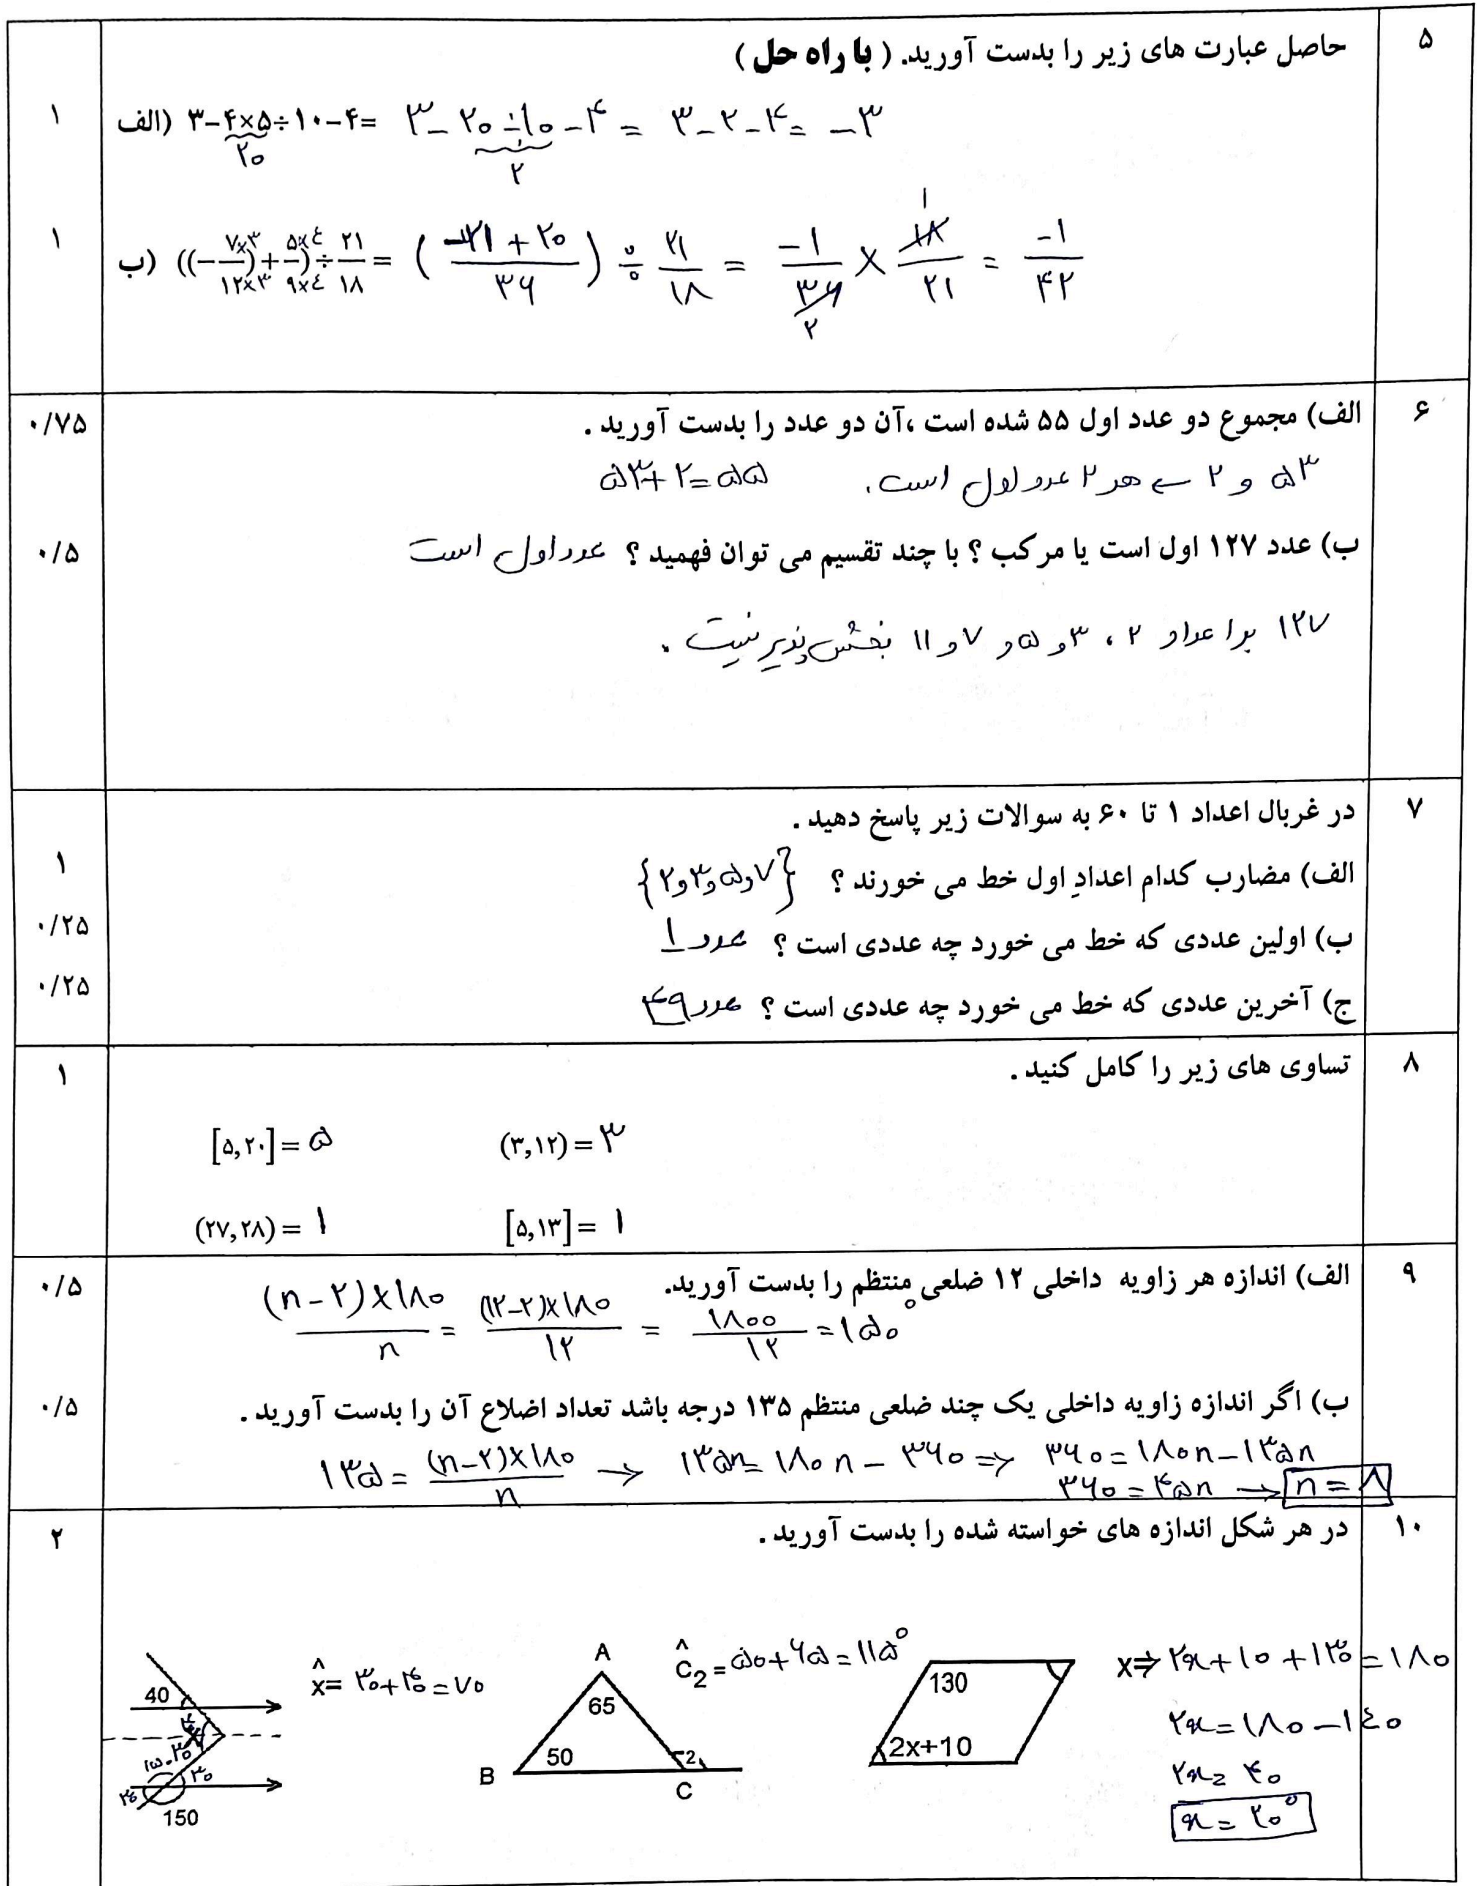 ۵
حاصل عبارت های زیر را بدست آورید. ( با راه حل )
۱
الف) ۳-۴×۵÷۱۰-۴= ۳-۲۰÷۱۰-۴ = ۳-۲-۴= -۳
۲۰ ۲
۱
ب) ((-۷×۳/۱۲×۳)+۵×٤/۹×٤)÷۲۱/۱۸= (-۲۱+۲۰/۳۶) ÷ ۲۱/۱۸ = -۱/۳۶ × ۱۸/۲۱ = -۱/۴۲
۱
۲
۶
الف) مجموع دو عدد اول ۵۵ شده است ،آن دو عدد را بدست آورید .
۰/۷۵
۵۳ و ۲ ← هر ۲ عدد اول است. ۵۳+۲=۵۵
ب) عدد ۱۲۷ اول است یا مرکب ؟ با چند تقسیم می توان فهمید ؟ عدد اول است
۰/۵
۱۲۷ بر اعداد ۲ ، ۳ و ۵ و ۷ و ۱۱ بخش پذیر نیست .
۷
در غربال اعداد ۱ تا ۶۰ به سوالات زیر پاسخ دهید .
الف) مضارب کدام اعدادِ اول خط می خورند ؟ {۲و۳و۵و۷}
۱
ب) اولین عددی که خط می خورد چه عددی است ؟ عدد ۱
۰/۲۵
ج) آخرین عددی که خط می خورد چه عددی است ؟ عدد ۴۹
۰/۲۵
۸
تساوی های زیر را کامل کنید .
۱
[۵,۲۰]= ۵ (۳,۱۲)= ۳
(۲۷,۲۸)= ۱ [۵,۱۳]= ۱
۹
الف) اندازه هر زاویه داخلی ۱۲ ضلعی منتظم را بدست آورید.
۰/۵
(n-۲)×۱۸۰/n = (۱۲-۲)×۱۸۰/۱۲ = ۱۸۰۰/۱۲ =۱۵۰°
ب) اگر اندازه زاویه داخلی یک چند ضلعی منتظم ۱۳۵ درجه باشد تعداد اضلاع آن را بدست آورید .
۰/۵
۱۳۵ = (n-۲)×۱۸۰/n → ۱۳۵n= ۱۸۰n - ۳۶۰ => ۳۶۰=۱۸۰n-۱۳۵n
۳۶۰=۴۵n → n=۸
۱۰
در هر شکل اندازه های خواسته شده را بدست آورید .
۲
x̂= ۳۰+۴۰=۷۰
40
۴۰
x
۳۰
۱۵۰
۳۰
150
A
65
50
B
2
C
Ĉ2=۵۰+۶۵=۱۱۵°
130
2x+10
x⇒ ۲x+۱۰+۱۳۰=۱۸۰
۲x=۱۸۰-۱٤۰
۲x=۴۰
x=۲۰°